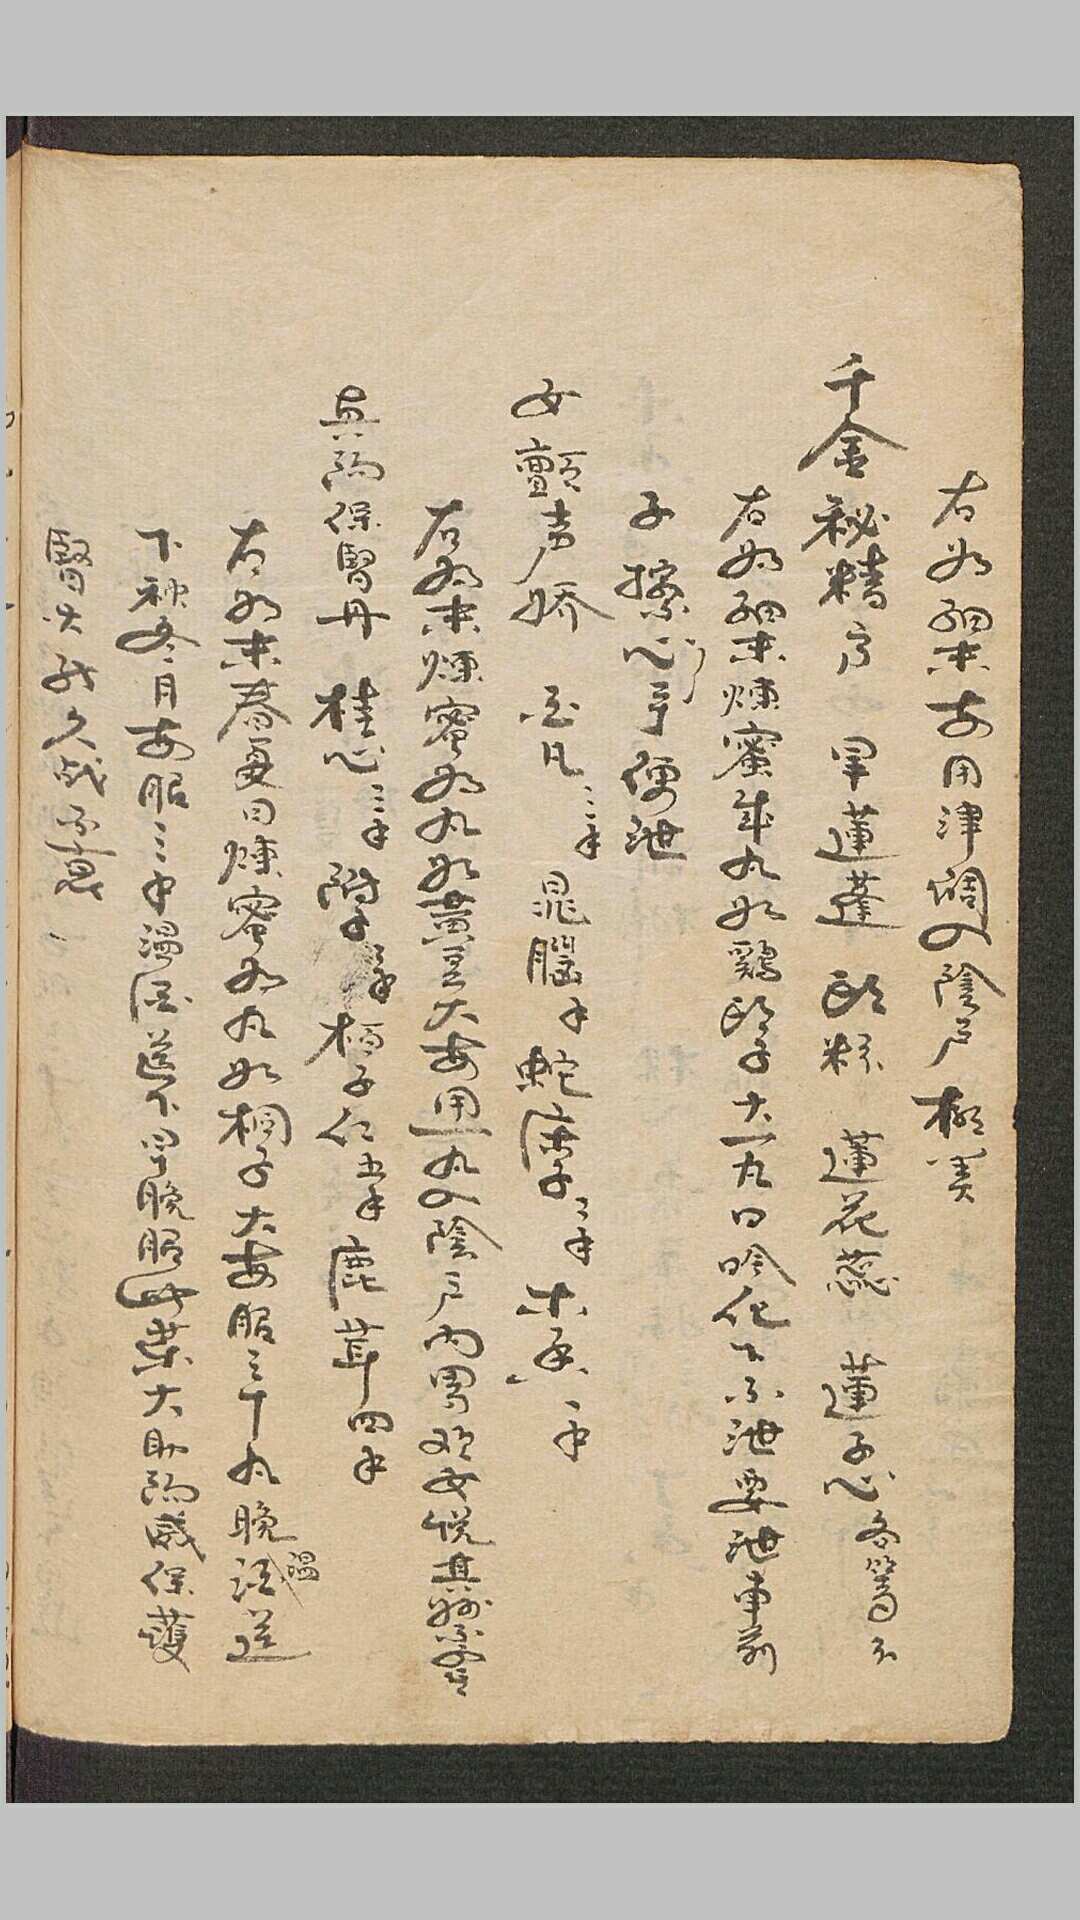 右為細末每用津調入陰戶極美
千金秘精方 旱蓮蓬 頭粉 蓮花蕊 蓮子心各等分
右為細末煉蜜成丸如鷄頭子大一丸口噙化下不泄要泄車前
子擦心 便泄
女顫声娇 白凡二 腦 蛇床子 木香一
右為末煉蜜為丸如黃豆大每用一丸入陰戶內 女悅其
興陽保腎丹 桂心三 附子 柏子仁五 鹿茸四
右為末春夏日煉蜜為丸如桐子大每服三十丸晚温酒送
下秋冬月每服三 温酒送下早晚服此藥大助陽威保護
腎 久戰不衰